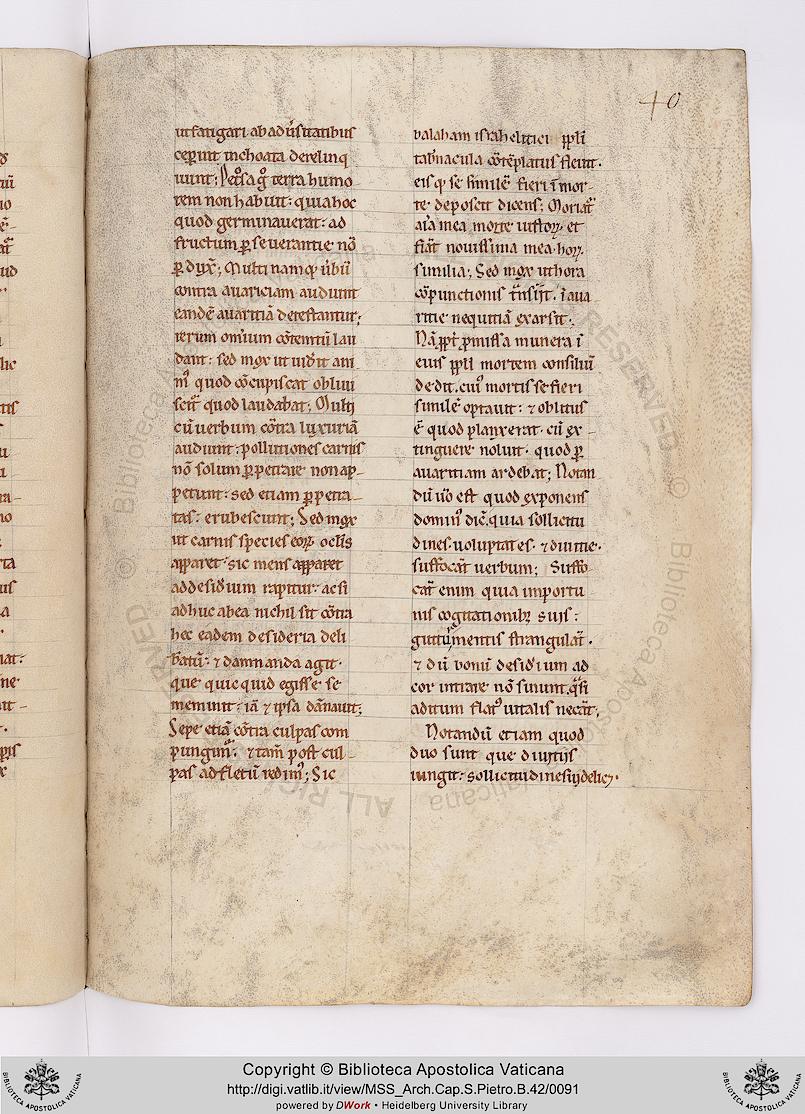 40
ut fatigari ab aduͥsitatibus
ceꝑint inchoata derelinq
uunt; Petͦsa gͦ terra humo
rem non habuit: quia hoc
quod germinauerat: ad
fructum ꝑseuerantie nō
ꝑdux̄; Multi namqꝫ ūbū
contra auariciam audiunt
eandē auaritiā detestantur;
rerum omīum cōtemtū lau
dant: sed mox ut uid̄it ani
mꝰ quod cōcupiscat obliui
scit᷑ quod laudabat; Multi
cū uerbum cōtra luxuriā
audiunt: pollutiones carnis
nō solum ꝑpetrare non ap-
petunt: sed etiam ꝑpetra-
tas: erubescunt; Sed mox
ut carnis species eoꝝ oclīs
apparet: sic mens apparet
ad desid̄ium rapitur: ac si
adhuc ab ea nichil sit cōtra
hec eadem desideria deli
b̄atū: ⁊ damnanda agit·
que quicquid egisse se
meminit: iā ⁊ ipsa dānauit;
Sepe etiā cōtra culpas com
pungim᷑· ⁊ tam̄ post cul-
pas ad fletū redimꝰ; Sic
balaham israhelitici ppl̄i
tab̄nacula cōtēplatus fleuit·
eisqꝫ se similē fieri ī mor-
te deposcit dicens; Moriat᷑
aīa mea morte iustoꝝ· et
fiāt nouissima mea· hoꝝ
similia; Sed mox ut hora
cōpunctionis t̄nsiit· ī aua
ritie nequitiā exarsit·
Nā ꝓpt̄ ꝓmissa munera ī
eius ppl̄i mortem consiliū
dedit· cuiꝰ mortis se fieri
similē optauit: ⁊ oblitus
ē quod planxerat· cū ex-
tinguere noluit· quod ꝑ
auaritiam ardebat; Notan
dū ūo est quod exponens
dominꝰ dic̄· quia sollicitu
dines· uoluptates· ⁊ diuitie·
suffocāt uerbum; Suffo
cāt enim quia importu
nis cogitationibꝫ suis:
guttur mentis strangulāt·
⁊ dū bonū desid̄ium ad
cor intrare nō sinunt· qᷓsi
aditum flatꝰ uitalis necāt;
Notandū etiam quod
duo sunt que diuitiis
iungit: sollicitudines ⁊ delic̄·
Copyright © Biblioteca Apostolica Vaticana
http://digi.vatlib.it/view/MSS_Arch.Cap.S.Pietro.B.42/0091
powered by DWork • Heidelberg University Library
BIBLIOTECA APOSTOLICA VATICANA
BIBLIOTECA APOSTOLICA VATICANA